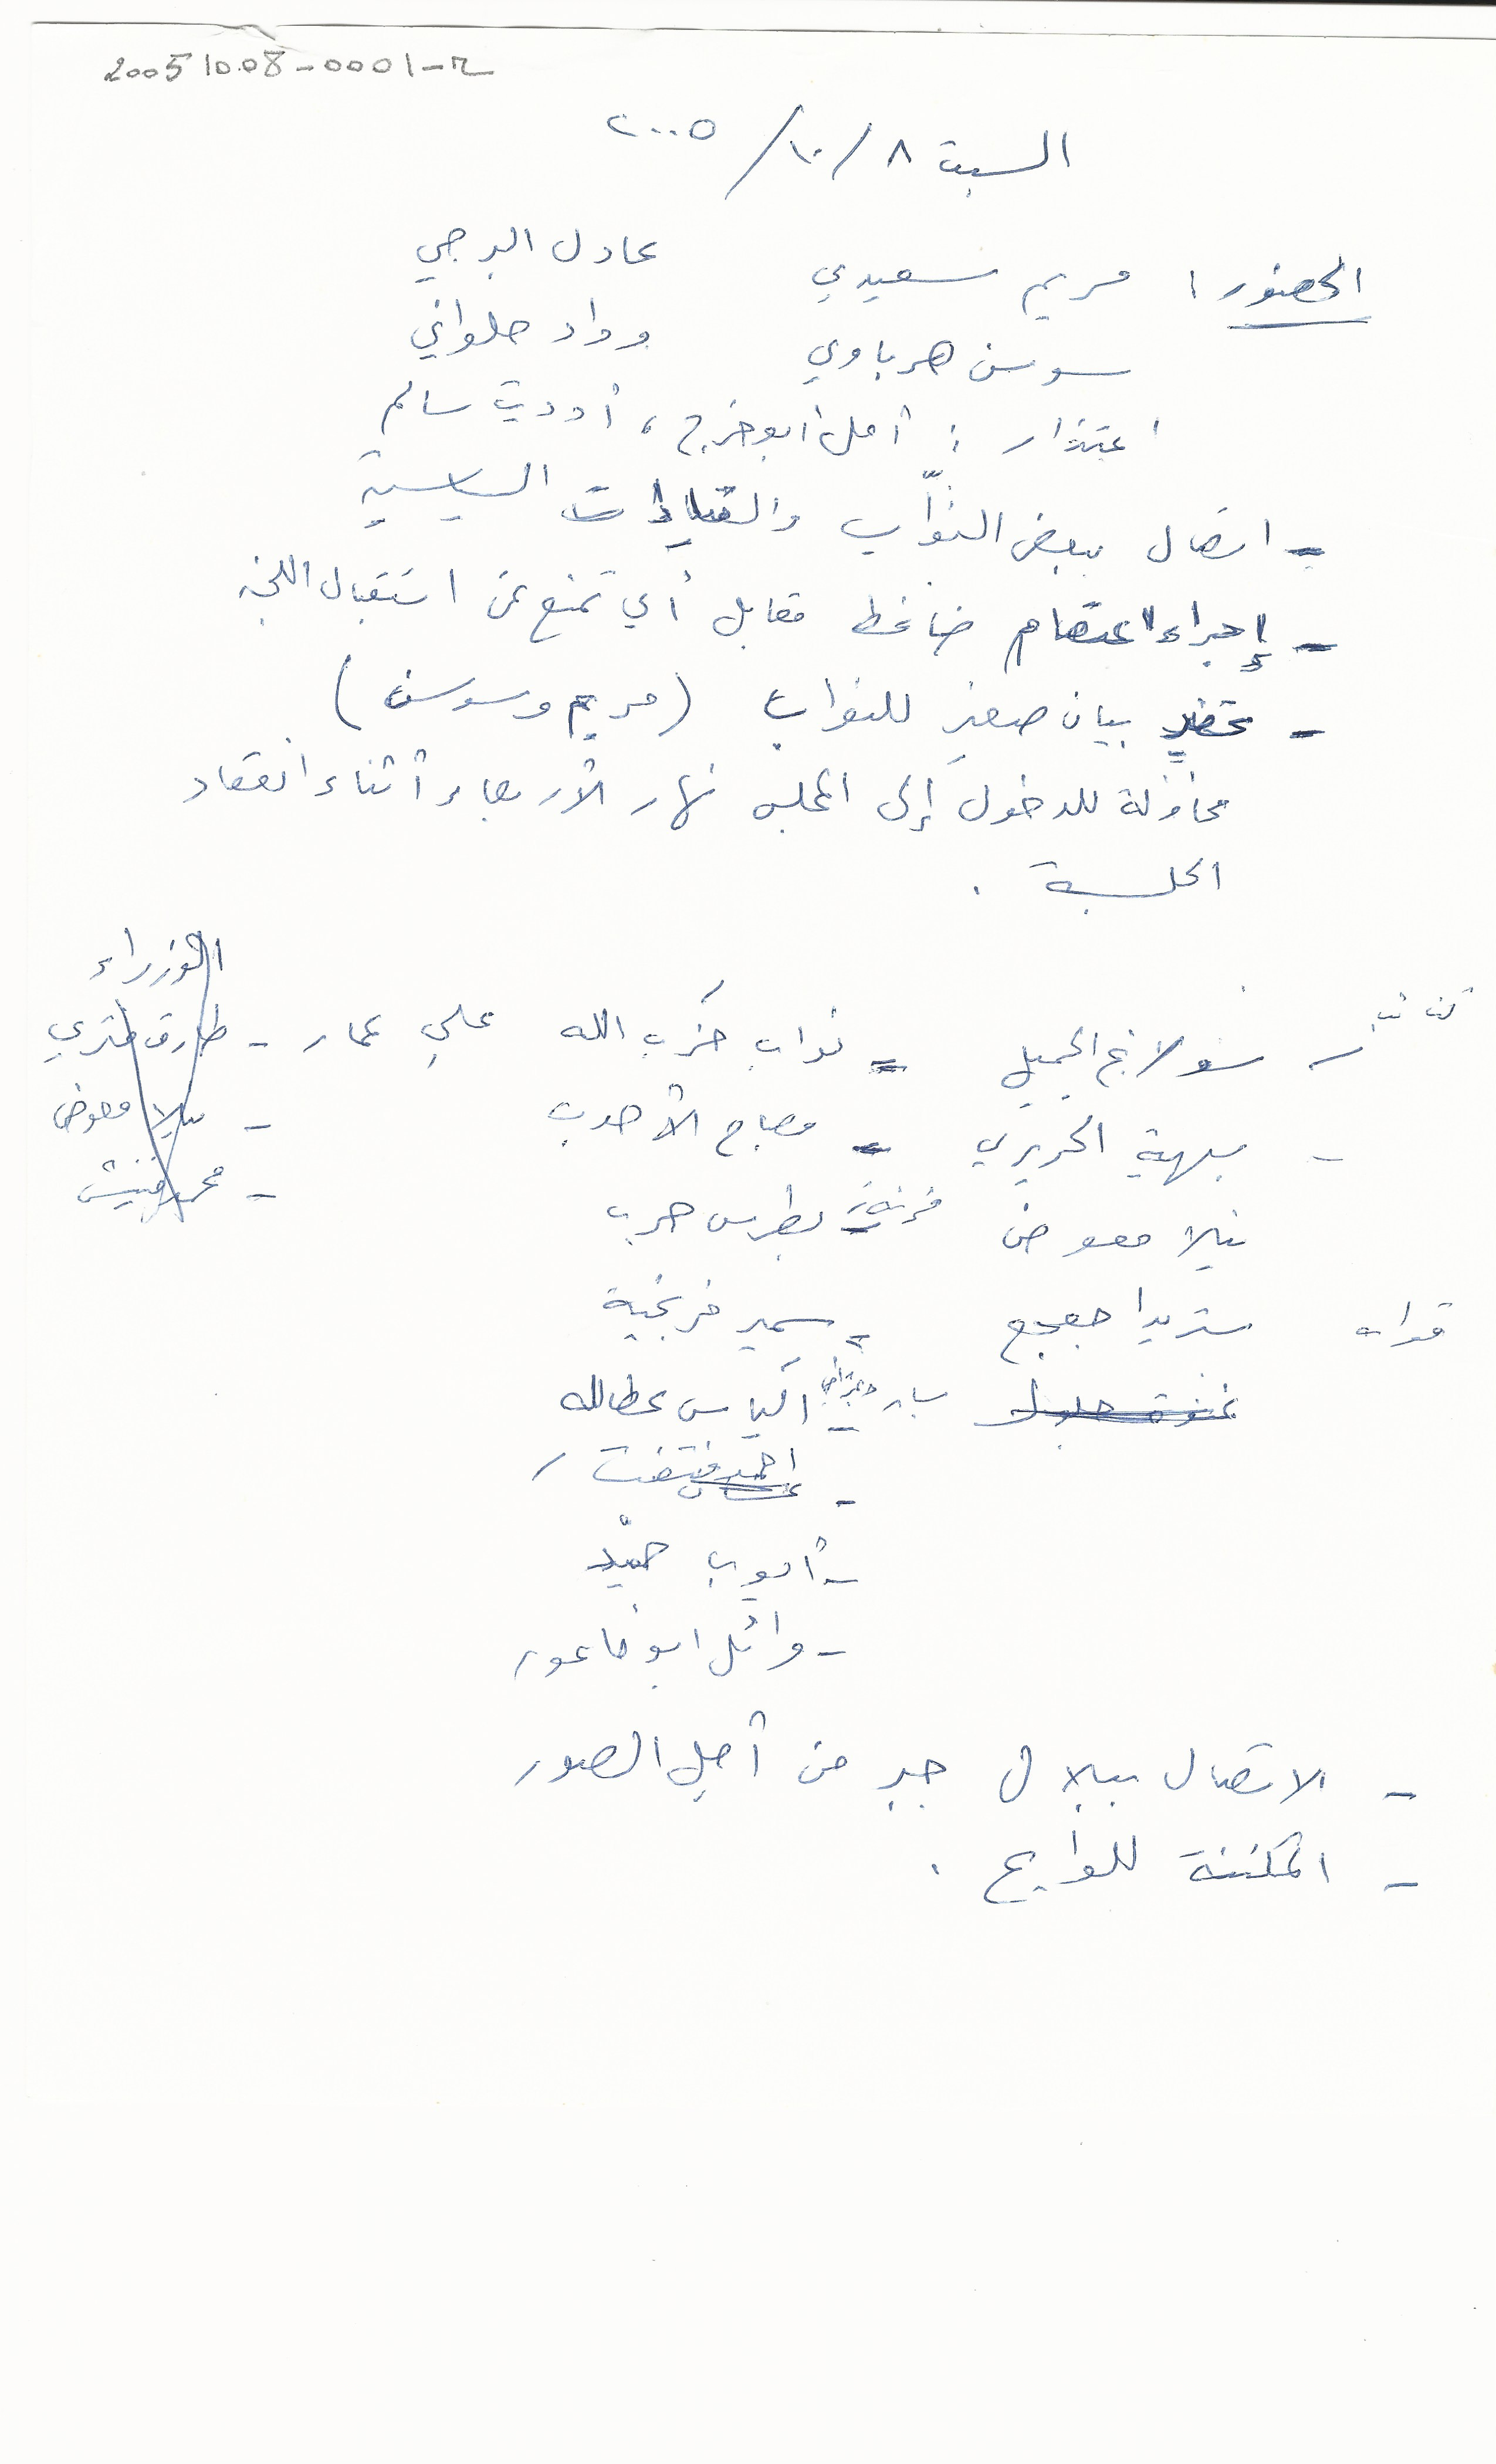 20051008-0001-2
السبت ٨/١٠/٢٠٠٥
الحضور: مريم سعيدي عادل البرجي
سوسن هرباوي وداد حلواني
اعتذار: أمل ابو خرج، أوديت سالم
- اتصال ببعض النوّاب والقيادات السياسية
- إجراء اعتصام ضاغط مقابل أي تمنع عن استقبال اللجنة
- تحضير بيان صغير للنواب (مريم وسوسن)
محاولة للدخول إلى المجلس نهار الأربعاء أثناء انعقاد
الجلسة.
الوزراء
- سولانج الجميل - نواب حزب الله علي عمار - طارق متري
- بهية الحريري - مصباح الأحدب - نيلا معوض
نيلا معوض - بطرس حرب - محمد فنيش
قوات ستريدا جعجع - سمير فرنجية
غنوة جلول - الياس عطالله
- احمد فتفت
- أيوب حميّد
- وائل ابو فاعور
- الاتصال ببلال جبر من أجل الصور
- المكننة للوايح.